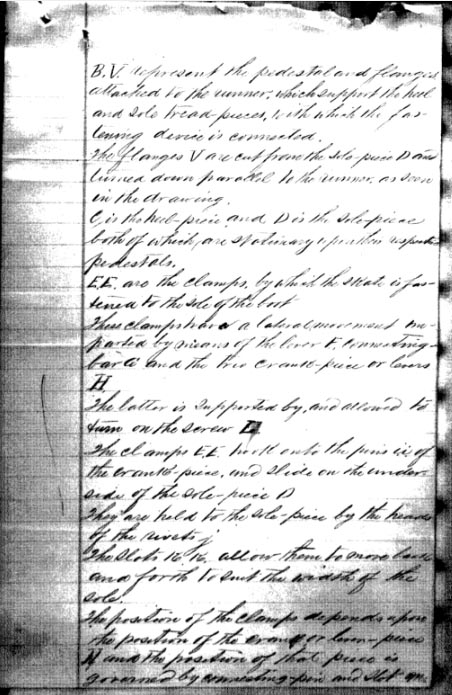 B.V. represent the pedestal and flanges
attached to the runner, which support the heel
and sole tread-pieces, with which the fas-
tening device is connected.
The flanges V are cut from the sole-piece D and
turned down parallel to the runner, as seen
in the drawing.
C, is the heel-piece and D is the sole-piece
both of which, are stationary upon their respective
pedestals.
E.E. are the clamps, by which the skate is fas-
tened to the sole of the boot
These clamps have a lateral movement im-
parted by means of the lever F, connecting-
bar G and the two crank-piece or levers
H
The latter is supported by, and allowed to
turn on the screw
The clamps E.E. hook onto the pins i.i. of
the crank-piece, and slide on the under
side of the sole-piece D
They are held to the sole-piece by the heads
of the rivets j
The slots K K, allow them to move back
and forth to suit the width of the
sole.
The position of the clamps depends upon
the position of the crank or lever-piece
H and the position of that piece is
governed by connecting-pin and slot